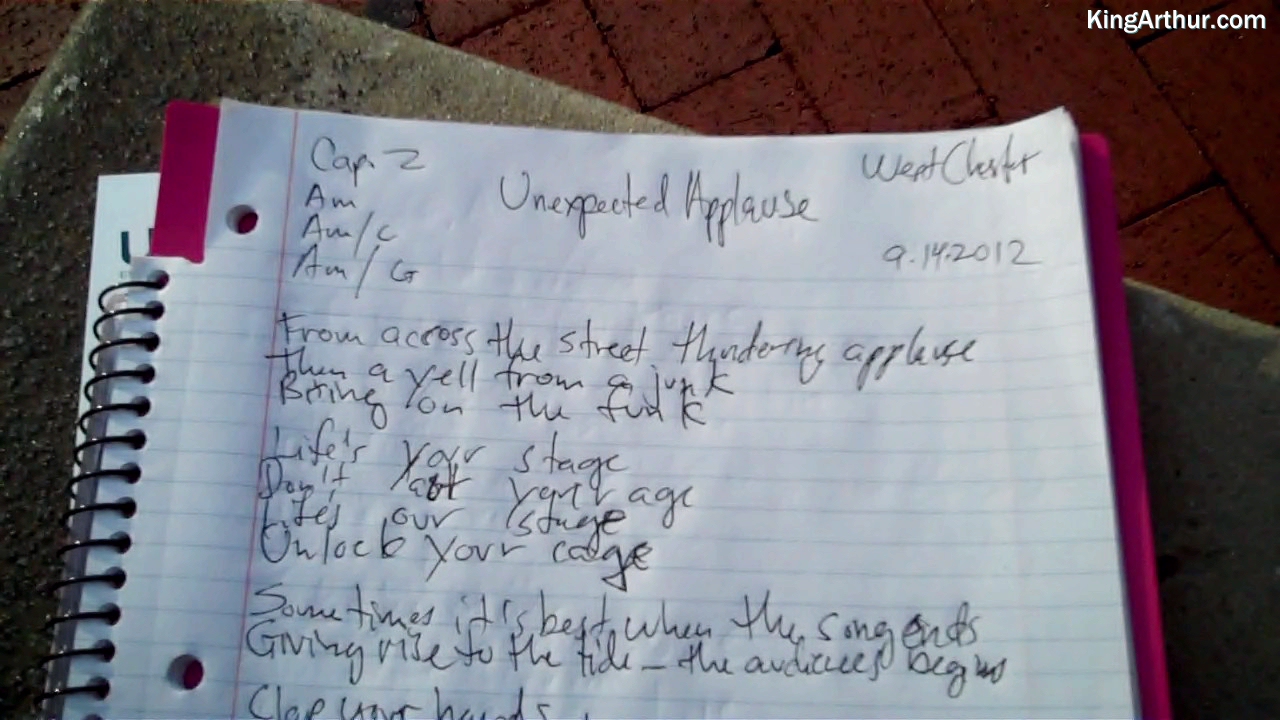 KingArthur.com
Cap. 2
West Chester
Am
Unexpected Applause
Am/C
9.14.2012
Am/G
From across the street thundering applause
Then a yell from a junk
Bring on the funk
Life's your stage
Don't act your age
Life's our stage
Unlock your cage
Sometimes it's best when the song ends
Giving rise to the tide – the audience begins
Clap your hands